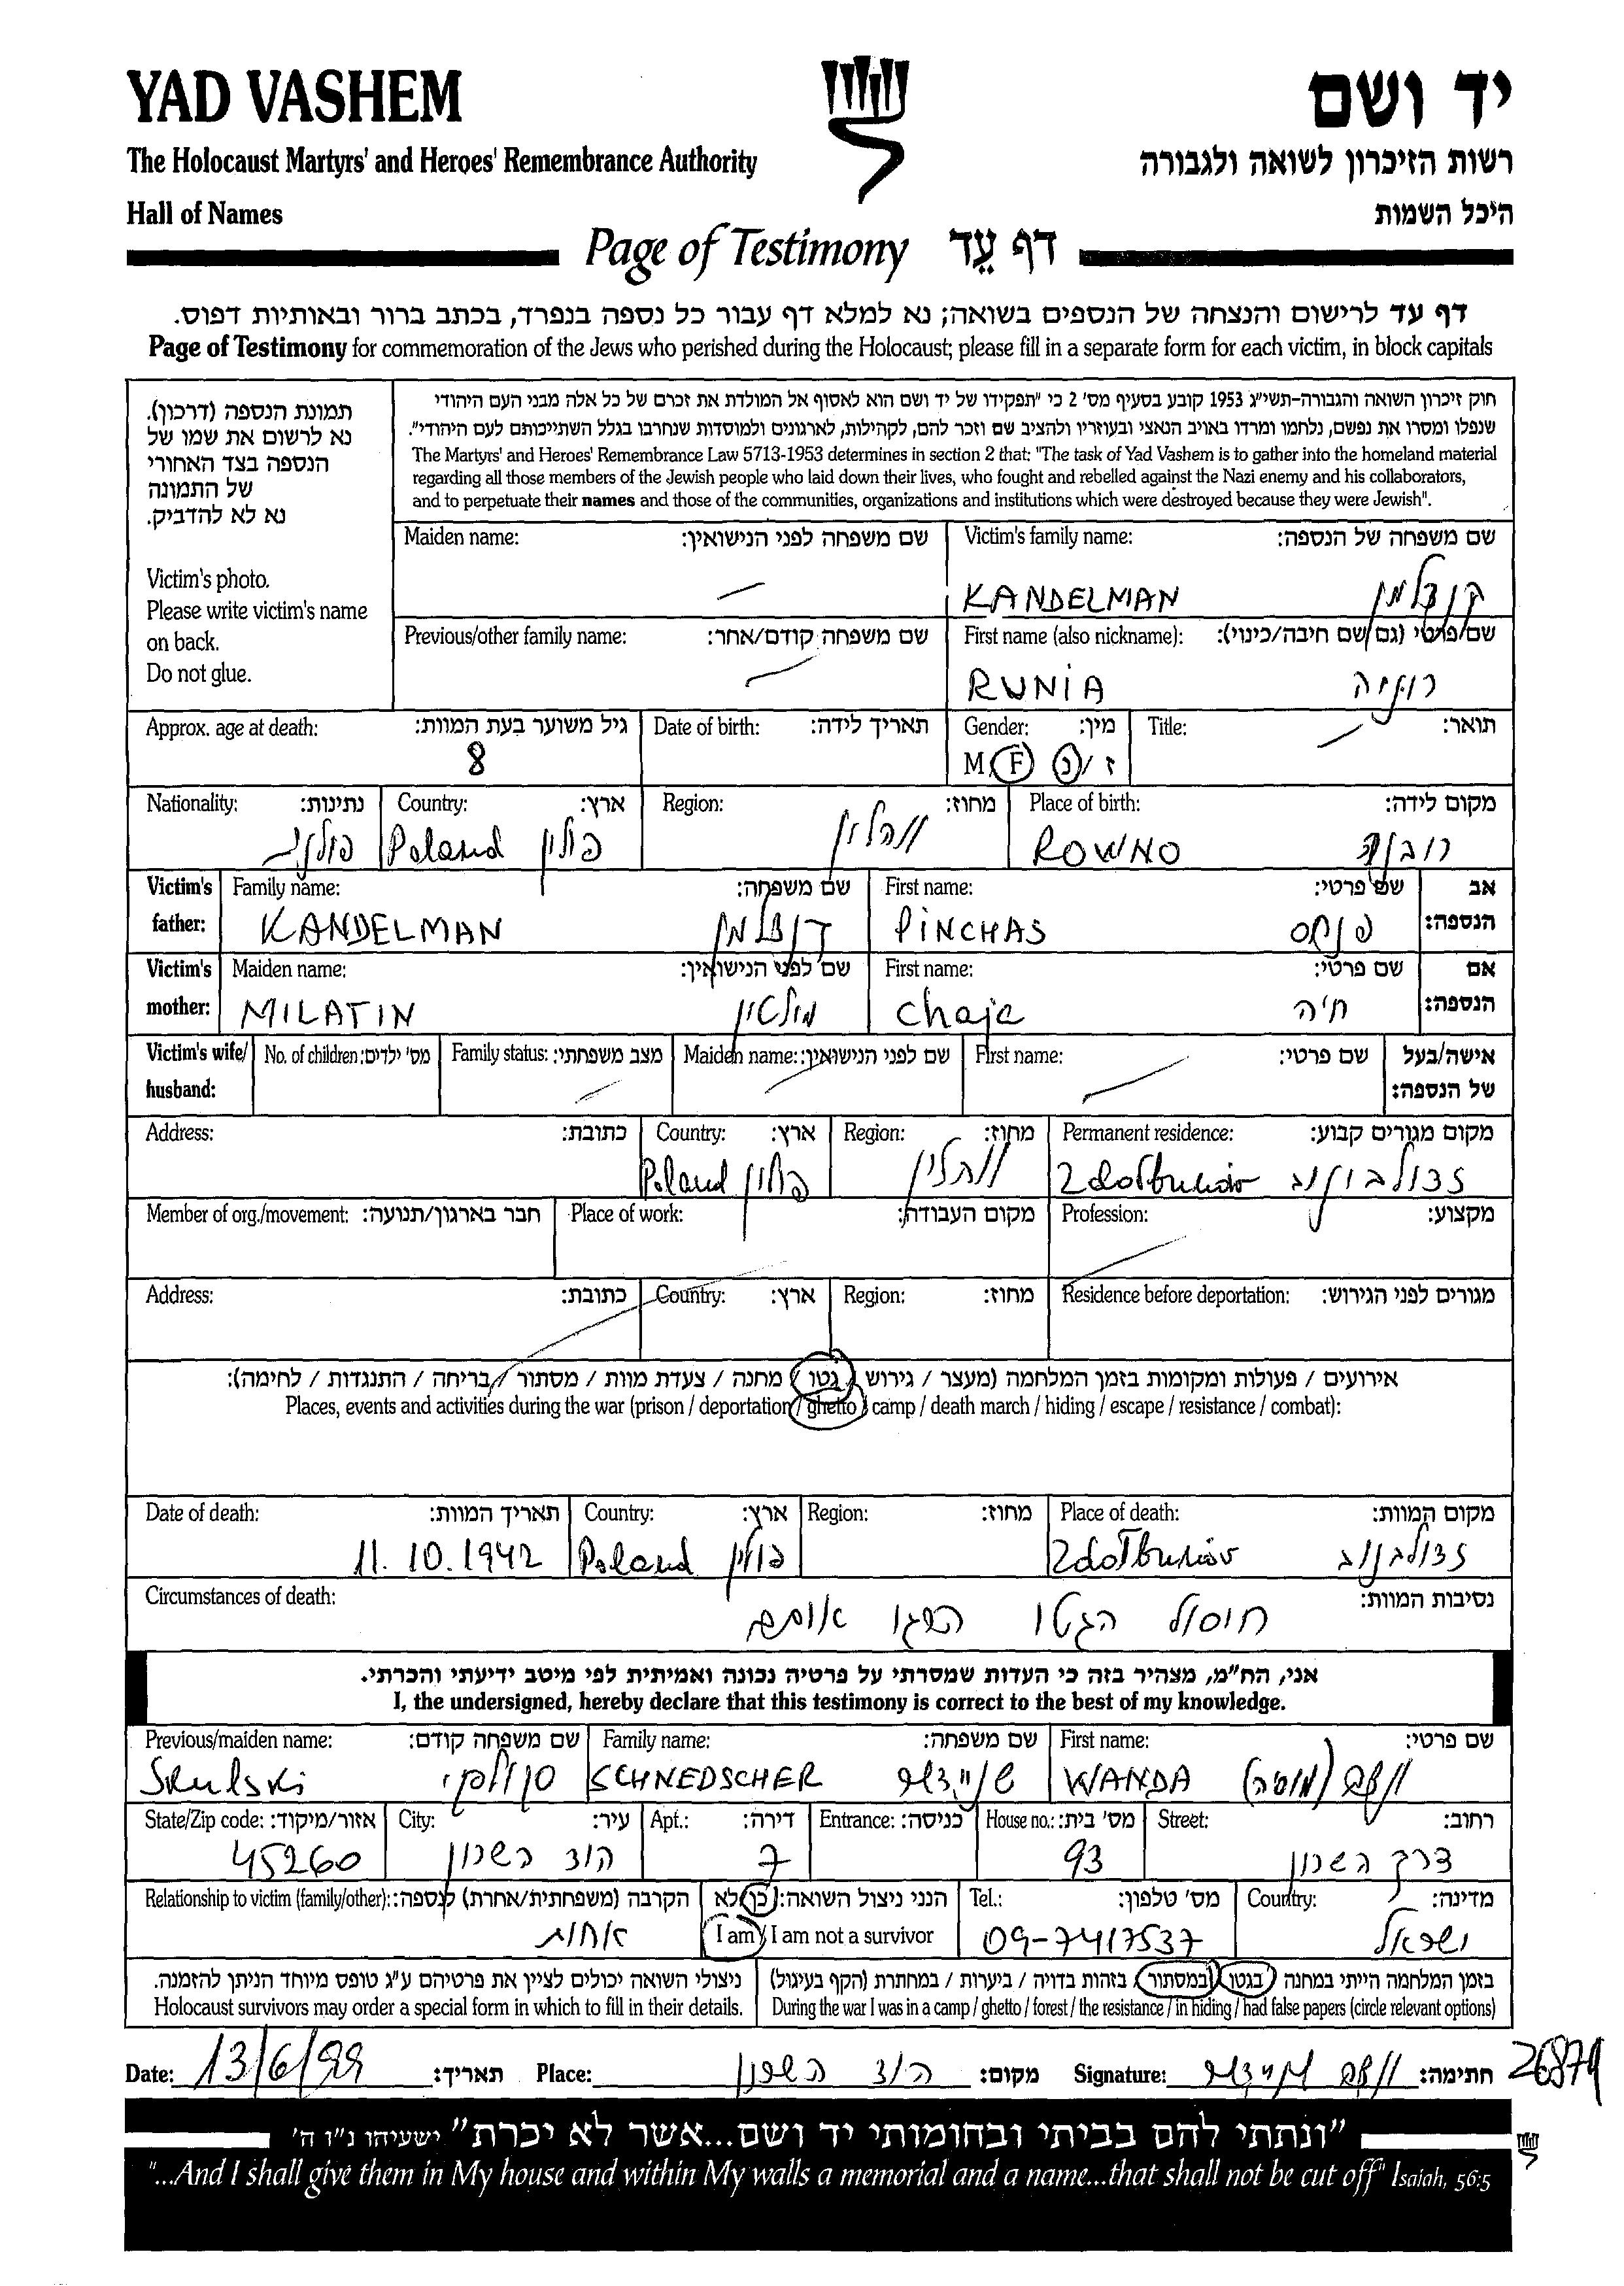 YAD VASHEM
יד ושם
The Holocaust Martyrs' and Heroes' Remembrance Authority
רשות הזיכרון לשואה ולגבורה
Hall of Names
היכל השמות
Page of Testimony דף עֵד
דף עד לרישום והנצחה של הנספים בשואה; נא למלא דף עבור כל נספה בנפרד, בכתב ברור ובאותיות דפוס.
Page of Testimony for commemoration of the Jews who perished during the Holocaust; please fill in a separate form for each victim, in block capitals
תמונת הנספה (דרכון).
נא לרשום את שמו של
הנספה בצד האחורי
של התמונה
נא לא להדביק.
Victim's photo.
Please write victim's name
on back.
Do not glue.
חוק זיכרון השואה והגבורה-תשי"ג 1953 קובע בסעיף מס' 2 כי "תפקידו של יד ושם הוא לאסוף אל המולדת את זכרם של כל אלה מבני העם היהודי
שנפלו ומסרו את נפשם, נלחמו ומרדו באויב הנאצי ובעוזריו ולהציב שם וזכר להם, לקהילות, לארגונים ולמוסדות שנחרבו בגלל השתייכותם לעם היהודי".
The Martyrs' and Heroes' Remembrance Law 5713-1953 determines in section 2 that: "The task of Yad Vashem is to gather into the homeland material
regarding all those members of the Jewish people who laid down their lives, who fought and rebelled against the Nazi enemy and his collaborators,
and to perpetuate their names and those of the communities, organizations and institutions which were destroyed because they were Jewish".
Maiden name: שם משפחה לפני הנישואין: Victim's family name: שם משפחה של הנספה:
KANDELMAN קנדלמן
Previous/other family name: שם משפחה קודם/אחר: First name (also nickname): שם פרטי (גם שם חיבה/כינוי):
RUNiA רוניה
Approx. age at death: גיל משוער בעת המוות: Date of birth: תאריך לידה: Gender: מין: Title: תואר:
8 M F ז/נ
Nationality: נתינות: Country: ארץ: Region: מחוז: Place of birth: מקום לידה:
Poland פולין ווהלין ROWNO
Victim's father: Family name: שם משפחה: First name: שם פרטי: אב הנספה:
KANDELMAN קנדלמן PiNCHAS פנחס
Victim's mother: Maiden name: שם לפני הנישואין: First name: שם פרטי: אם הנספה:
MILATIN מילטין Chaje חיה
Victim's wife/ husband: No. of children: מס' ילדים: Family status: מצב משפחתי: Maiden name: שם לפני הנישואין: First name: שם פרטי: אישה/בעל של הנספה:
Address: כתובת: Country: ארץ: Region: מחוז: Permanent residence: מקום מגורים קבוע:
Poland פולין ווהלין Zdołbunów זדולבונוב
Member of org./movement: חבר בארגון/תנועה: Place of work: מקום העבודה: Profession: מקצוע:
Address: כתובת: Country: ארץ: Region: מחוז: Residence before deportation: מגורים לפני הגירוש:
אירועים / פעולות ומקומות בזמן המלחמה (מעצר / גירוש / גטו / מחנה / צעדת מוות / מסתור / בריחה / התנגדות / לחימה):
Places, events and activities during the war (prison / deportation / ghetto / camp / death march / hiding / escape / resistance / combat):
Date of death: תאריך המוות: Country: ארץ: Region: מחוז: Place of death: מקום המוות:
11.10.1942 Poland פולין Zdołbunów זדולבנוב
Circumstances of death: נסיבות המוות:
חיסול הגטו הרגו אותם
אני, הח"מ, מצהיר בזה כי העדות שמסרתי על פרטיה נכונה ואמיתית לפי מיטב ידיעתי והכרתי.
I, the undersigned, hereby declare that this testimony is correct to the best of my knowledge.
Previous/maiden name: שם משפחה קודם: Family name: שם משפחה: First name: שם פרטי:
Skulski סקולסקי SCHNEDSCHER WANDA ונדה
State/Zip code: אזור/מיקוד: City: עיר: Apt.: דירה: Entrance: כניסה: House no.: מס' בית: Street: רחוב:
45260 הוד השרון 7 93 דרך השרון
Relationship to victim (family/other): הקרבה (משפחתית/אחרת) לנספה: הנני ניצול השואה: כן/לא Tel.: מס' טלפון: Country: מדינה:
אחות I am / I am not a survivor 09-7417537 ישראל
ניצולי השואה יכולים לציין את פרטיהם ע"ג טופס מיוחד הניתן להזמנה. בזמן המלחמה הייתי במחנה / בגטו / במסתור / בזהות בדויה / ביערות / במחתרת (הקף בעיגול)
Holocaust survivors may order a special form in which to fill in their details. During the war I was in a camp / ghetto / forest / the resistance / in hiding / had false papers (circle relevant options)
Date: 13/6/99 תאריך: Place: הוד השרון מקום: Signature: חתימה: 26879
"ונתתי להם בביתי ובחומותי יד ושם...אשר לא יכרת" ישעיהו נ"ו ה'
"...And I shall give them in My house and within My walls a memorial and a name...that shall not be cut off" Isaiah, 56:5